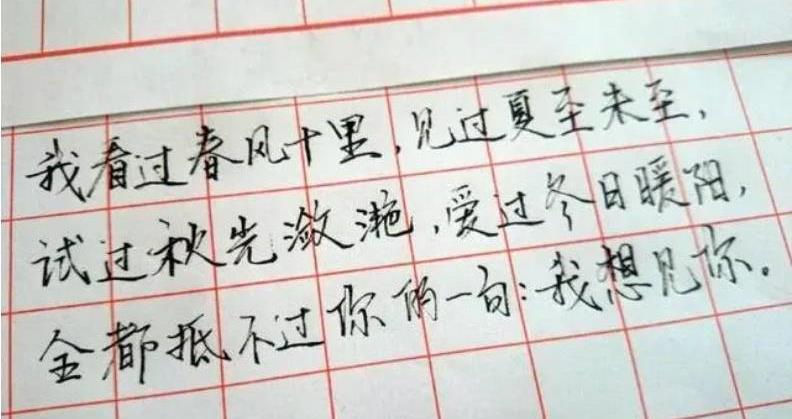 我看过春风十里，见过夏至未至，
试过秋光潋滟，爱过冬日暖阳，
全都抵不过你的一句：我想见你。